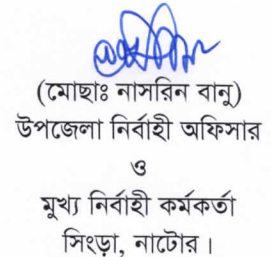 (মোছাঃ নাসরিন বানু)
উপজেলা নির্বাহী অফিসার
ও
মুখ্য নির্বাহী কর্মকর্তা
সিংড়া, নাটোর।